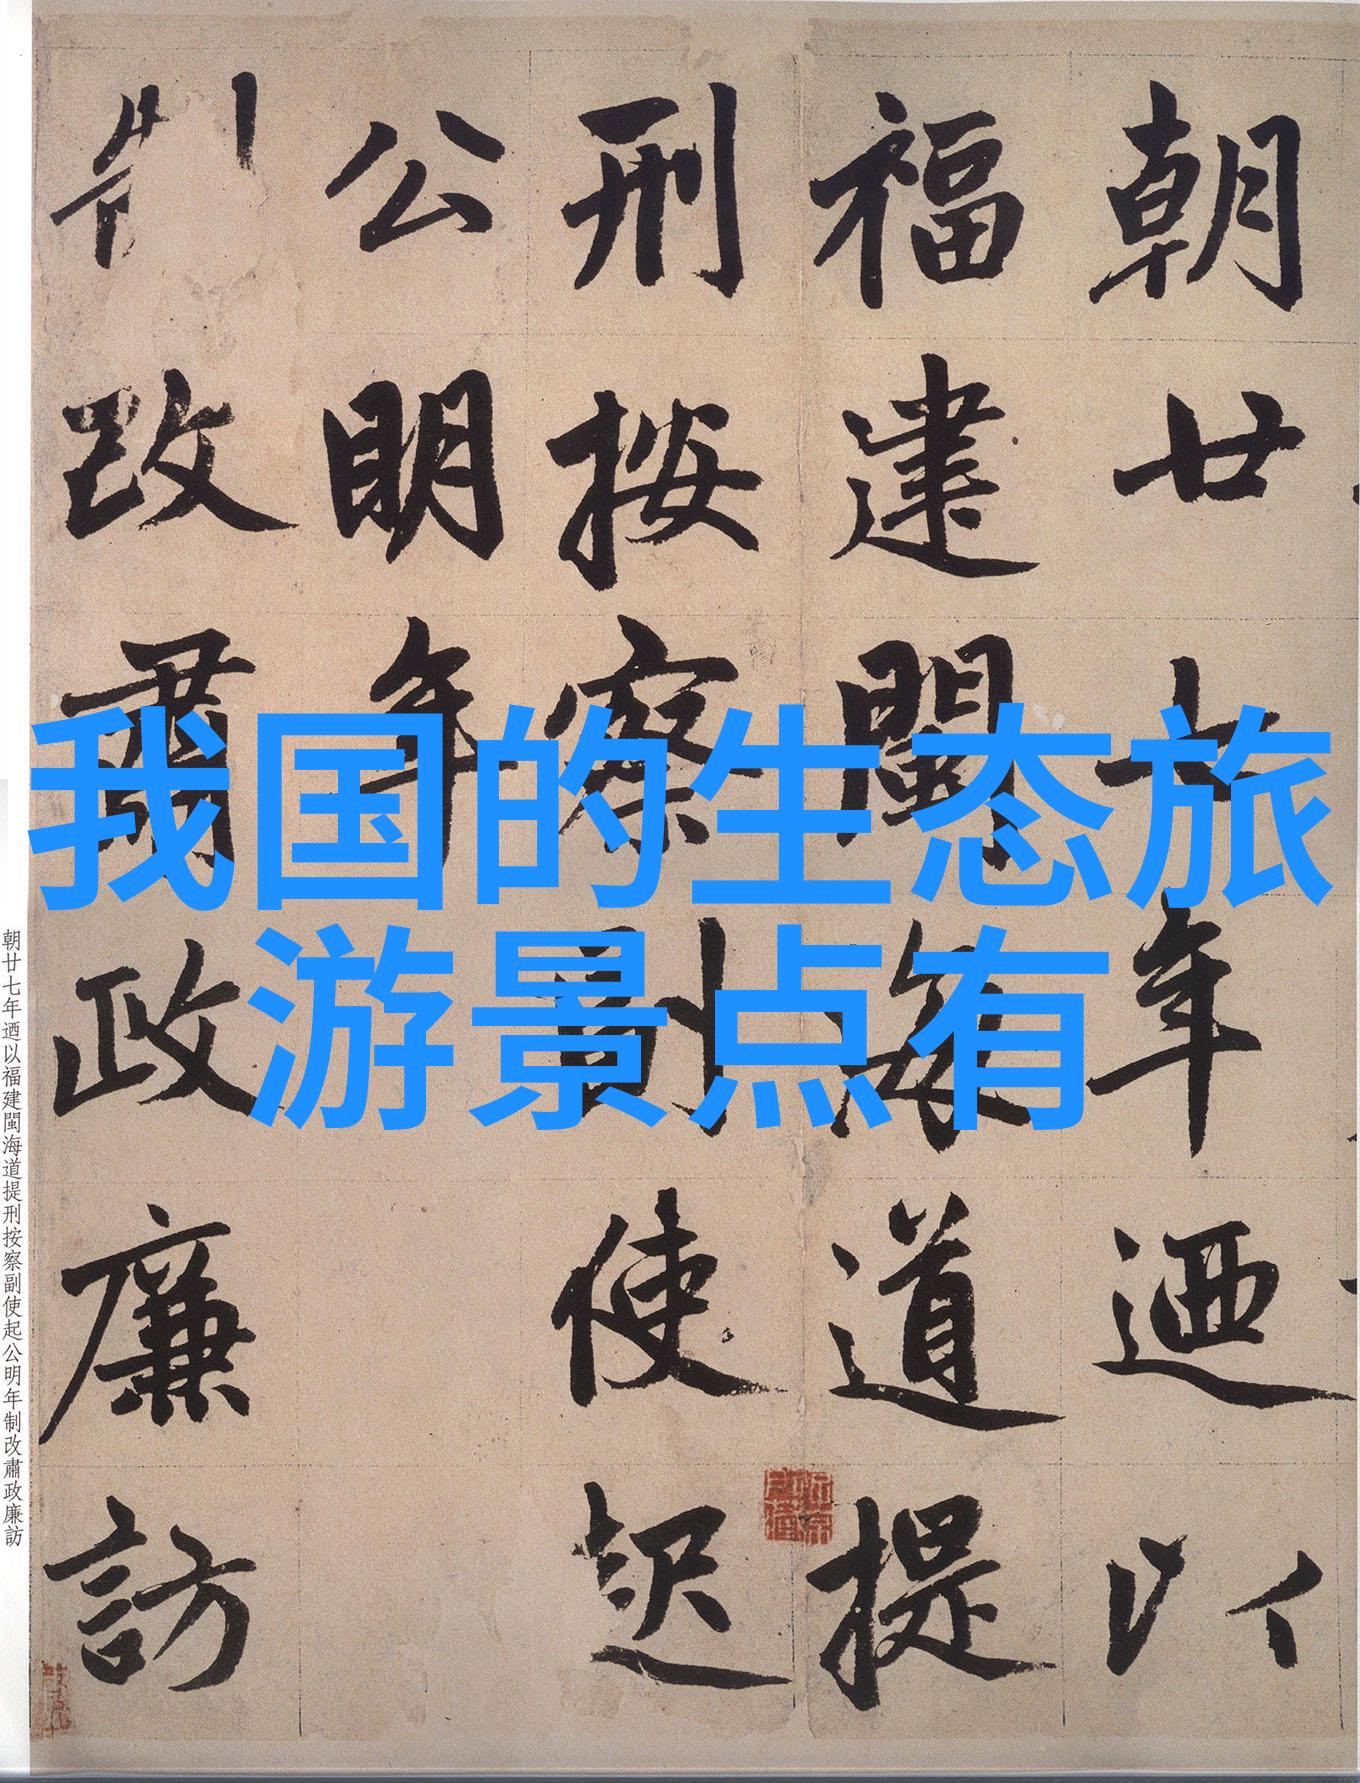 我国的生态旅
游景点有
朝廿七年迺以
福建閩海道提
刑按察副使起
公明年
制改肅政廉訪
朝廿七年迺以福建閩海道提刑按察副使起公明年制改肅政廉訪